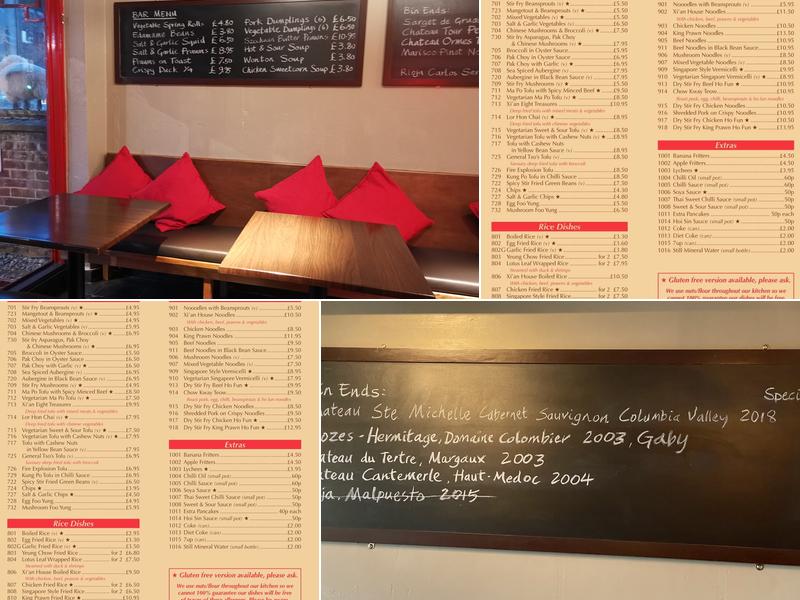 BAR MENU
Vegetable Spring Rolls £4.80
Edamame Beans £3.80
Salt & Garlic Squid £6.50
Salt & Garlic Prawns £8.95
Prawns on Toast £7.50
Crispy Duck 1/4 £9.95
Pork Dumplings (6) £6.50
Vegetable Dumplings (6) £6.50
£10.95
Hot & Sour Soup £3.80
Wonton Soup £3.80
Chicken Sweetcorn Soup £3.80
Bin Ends:
Sarget de Grua
Chateau Tour
Chateau Ormes
Marisco Pinot No
Rioja Carlos Ser
701 Stir Fry Beansprouts (v) ★ £5.95
723 Mangetout & Beansprouts (v) ★ £7.95
702 Mixed Vegetables (v) ★ £7.50
703 Salt & Garlic Vegetables (v) £6.50
704 Chinese Mushrooms & Broccoli (v) ★ £7.95
730 Stir Fry Asparagus, Pak Choy
& Chinese Mushrooms (v) ★ £7.95
705 Broccoli in Oyster Sauce £6.50
706 Pak Choy in Oyster Sauce £7.50
707 Pak Choy with Garlic (v) ★ £7.50
708 Sea Spiced Aubergine £7.95
720 Aubergine in Black Bean Sauce (v) ★ £7.95
709 Stir Fry Mushrooms ★ £7.50
711 Ma Po Tofu with Spicy Minced Beef ★ £9.50
712 Vegetarian Ma Po Tofu (v) ★ £8.50
713 Xi'an Eight Treasures £10.95
Deep fried tofu with mixed meats & vegetables
714 Lor Hon Chai (v) ★ £7.95
Deep fried tofu with chinese vegetables
715 Vegetarian Sweet & Sour Tofu (v) ★ £8.50
716 Vegetarian Tofu with Cashew Nuts (v) ★ £8.50
717 Tofu with Cashew Nuts
in Yellow Bean Sauce (v) £7.95
725 General Tso's Tofu (v) £8.50
Savoury deep fried tofu with broccoli
726 Fire Explosion Tofu £8.50
729 Kung Po Tofu in Chilli Sauce £8.50
722 Spicy Stir Fried Green Beans (v) £7.50
724 Chips ★ £4.30
727 Salt & Garlic Chips ★ £4.80
728 Egg Foo Yung £5.95
732 Mushroom Foo Yung £6.50
Rice Dishes
801 Boiled Rice (v) ★ £3.30
802 Egg Fried Rice (v) ★ £3.60
802G Garlic Fried Rice (v) ★ £3.80
803 Yeung Chow Fried Rice for 2 £7.95
804 Lotus Leaf Wrapped Rice for 2 £7.95
Steamed with duck & shrimps
806 Xi'an House Boiled Rice £10.50
With chicken, beef, prawns & vegetables
807 Chicken Fried Rice ★ for 2 £7.50
808 Singapore Style Fried Rice
901 Nooodles with Beansprouts (v) ★ £5.50
902 Xi'an House Noodles ★ £11.50
With chicken, beef, prawns & vegetables
903 Chicken Noodles £10.50
904 King Prawn Noodles £13.50
905 Beef Noodles £10.50
911 Beef Noodles in Black Bean Sauce £10.95
906 Mushroom Noodles (v) £8.50
907 Mixed Vegetable Noodles (v) £8.50
909 Singapore Style Vermicelli ★ £9.50
910 Vegetarian Singapore Vermicelli (v) ★ £9.50
913 Dry Stir Fry Beef Ho Fun ★ £10.95
914 Chow Kway Teow £10.95
Roast pork, egg, chilli, beansprouts & ho fun noodles
915 Dry Stir Fry Chicken Noodles £10.50
916 Shredded Pork on Crispy Noodles £10.95
917 Dry Stir Fry Chicken Ho Fun ★ £10.50
918 Dry Stir Fry King Prawn Ho Fun ★ £13.95
Extras
1001 Banana Fritters £4.50
1003 Lychees ★ £3.95
1004 Chilli Oil (small pot) 60p
1005 Chilli Sauce (small pot) 60p
1006 Soya Sauce ★ 50p
1007 Thai Sweet Chilli Sauce (small pot) 50p
1008 Sweet & Sour Sauce (small pot) ★ 50p
1011 Extra Pancakes 50p each
1014 Hoi Sin Sauce (small pot) ★ 50p
1012 Coke (can) £2.00
1013 Diet Coke (can) £2.00
1015 7up (can) £2.00
1016 Still Mineral Water (small bottle) £2.00
★ Gluten free version available, please ask.
We use nuts/flour throughout our kitchen so we
cannot 100% guarantee our dishes will be free
701 Stir Fry Beansprouts (v) ★ £4.95
723 Mangetout & Beansprouts (v) ★ £6.95
702 Mixed Vegetables (v) ★ £6.50
703 Salt & Garlic Vegetables (v) £5.95
704 Chinese Mushrooms & Broccoli (v) ★ £6.95
730 Stir Fry Asparagus, Pak Choy
& Chinese Mushrooms (v) ★ £6.95
705 Broccoli in Oyster Sauce £5.50
706 Pak Choy in Oyster Sauce £6.50
707 Pak Choy with Garlic (v) ★ £6.50
708 Sea Spiced Aubergine £6.95
720 Aubergine in Black Bean Sauce (v) ★ £6.95
709 Stir Fry Mushrooms ★ £6.50
711 Ma Po Tofu with Spicy Minced Beef ★ £8.50
712 Vegetarian Ma Po Tofu (v) ★ £7.50
713 Xi'an Eight Treasures £9.95
Deep fried tofu with mixed meats & vegetables
714 Lor Hon Chai (v) ★ £7.95
Deep fried tofu with chinese vegetables
715 Vegetarian Sweet & Sour Tofu (v) ★ £7.50
716 Vegetarian Tofu with Cashew Nuts (v) ★ £7.95
717 Tofu with Cashew Nuts
in Yellow Bean Sauce (v) £7.95
725 General Tso's Tofu (v) £6.50
Savoury deep fried tofu with broccoli
726 Fire Explosion Tofu £6.50
729 Kung Po Tofu in Chilli Sauce £6.50
722 Spicy Stir Fried Green Beans (v) £6.50
724 Chips ★ £3.95
727 Salt & Garlic Chips ★ £4.50
728 Egg Foo Yung £4.95
732 Mushroom Foo Yung £5.95
Rice Dishes
801 Boiled Rice (v) ★ £2.95
802 Egg Fried Rice (v) ★ £3.30
802G Garlic Fried Rice (v) ★ £3.50
803 Yeung Chow Fried Rice for 2 £6.80
804 Lotus Leaf Wrapped Rice for 2 £7.50
Steamed with duck & shrimps
806 Xi'an House Boiled Rice £9.50
With chicken, beef, prawns & vegetables
807 Chicken Fried Rice ★ for 2 £6.50
808 Singapore Style Fried Rice for 2 £6.50
810 King Prawn Fried Rice £10.95
901 Nooodles with Beansprouts (v) ★ £5.50
902 Xi'an House Noodles ★ £10.50
With chicken, beef, prawns & vegetables
903 Chicken Noodles £8.50
904 King Prawn Noodles £11.95
905 Beef Noodles £9.50
911 Beef Noodles in Black Bean Sauce £9.50
906 Mushroom Noodles (v) £7.50
907 Mixed Vegetable Noodles (v) £7.50
909 Singapore Style Vermicelli ★ £8.95
910 Vegetarian Singapore Vermicelli (v) ★ £8.95
913 Dry Stir Fry Beef Ho Fun ★ £9.95
914 Chow Kway Teow £9.50
Roast pork, egg, chilli, beansprouts & ho fun noodles
915 Dry Stir Fry Chicken Noodles £9.50
916 Shredded Pork on Crispy Noodles £9.50
917 Dry Stir Fry Chicken Ho Fun ★ £9.50
918 Dry Stir Fry King Prawn Ho Fun ★ £12.95
Extras
1001 Banana Fritters £4.50
1002 Apple Fritters £4.50
1003 Lychees ★ £3.95
1004 Chilli Oil (small pot) 60p
1005 Chilli Sauce (small pot) 60p
1006 Soya Sauce ★ 50p
1007 Thai Sweet Chilli Sauce (small pot) 50p
1008 Sweet & Sour Sauce (small pot) ★ 50p
1011 Extra Pancakes 40p each
1014 Hoi Sin Sauce (small pot) ★ 50p
1012 Coke (can) £2.00
1013 Diet Coke (can) £2.00
1015 7up (can) £2.00
1016 Still Mineral Water (small bottle) £2.00
★ Gluten free version available, please ask.
We use nuts/flour throughout our kitchen so we
cannot 100% guarantee our dishes will be free
in Ends:
Speci
ateau Ste Michelle Cabernet Sauvignon Columbia Valley 2018
ozes - Hermitage, Domaine Colombier 2003, Gaby
ateau du Tertre, Margaux 2003
teau Cantemerle, Haut-Medoc 2004
ja, Malpuesto 2015